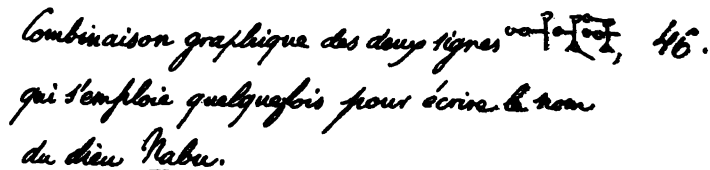 Combinaison graphique des deux signes , 46.
qui s'emploie quelquefois pour écrire le nom
du dieu Nabu.